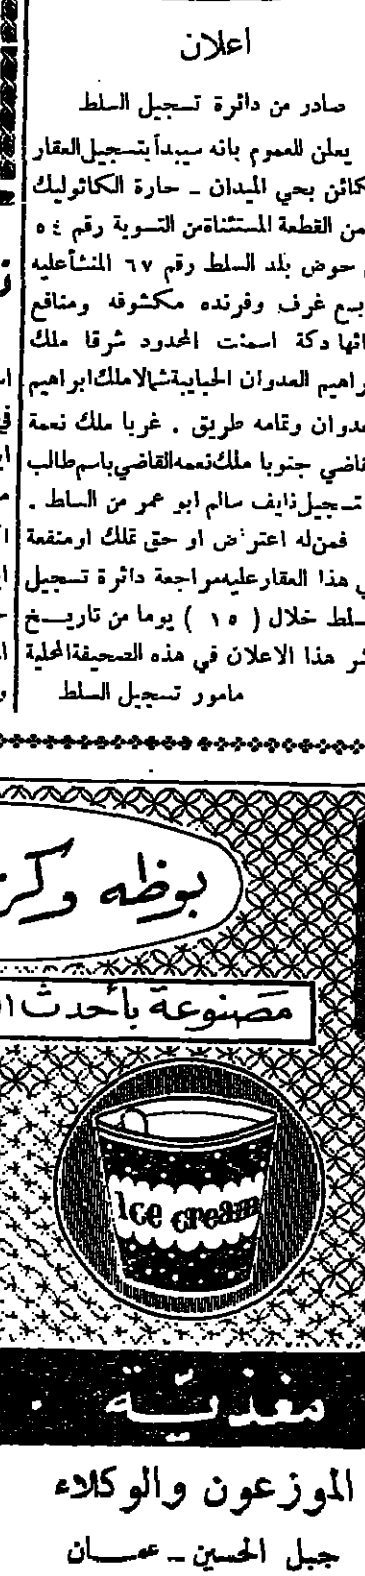 اعلان
صادر من دائرة تسجيل السلط
يعلن للعموم بانه سيبدأ بتسجيل العقار
كائن بحي الميدان - حارة الكاثوليك
من القطعة المستثناة من التسوية رقم ٥٤
حوض بلد السلط رقم ٦٧ المنشأ عليه
بع غرف وفرنده مكشوفه ومنافع
ائها دكة اسمنت المحدود شرقا ملك
راهيم العدوان الحبايبة شمالا ملك ابراهيم
عدوان وتمامه طريق . غربا ملك نعمة
قاضي جنوبا ملك نعمه القاضي باسم طالب
تسجيل ذايف سالم ابو عمر من السلط .
فمن له اعتراض او حق تملك او منفعة
ي هذا العقار عليه مراجعة دائرة تسجيل
سلط خلال ( ١٥ ) يوما من تاريخ
شر هذا الاعلان في هذه الصحيفة المحلية
مامور تسجيل السلط
بوظه وكر
مصنوعة بأحدث ا
Ice cream
مغذيّة .
الموزعون والوكلاء
جبل الحسين - عمان